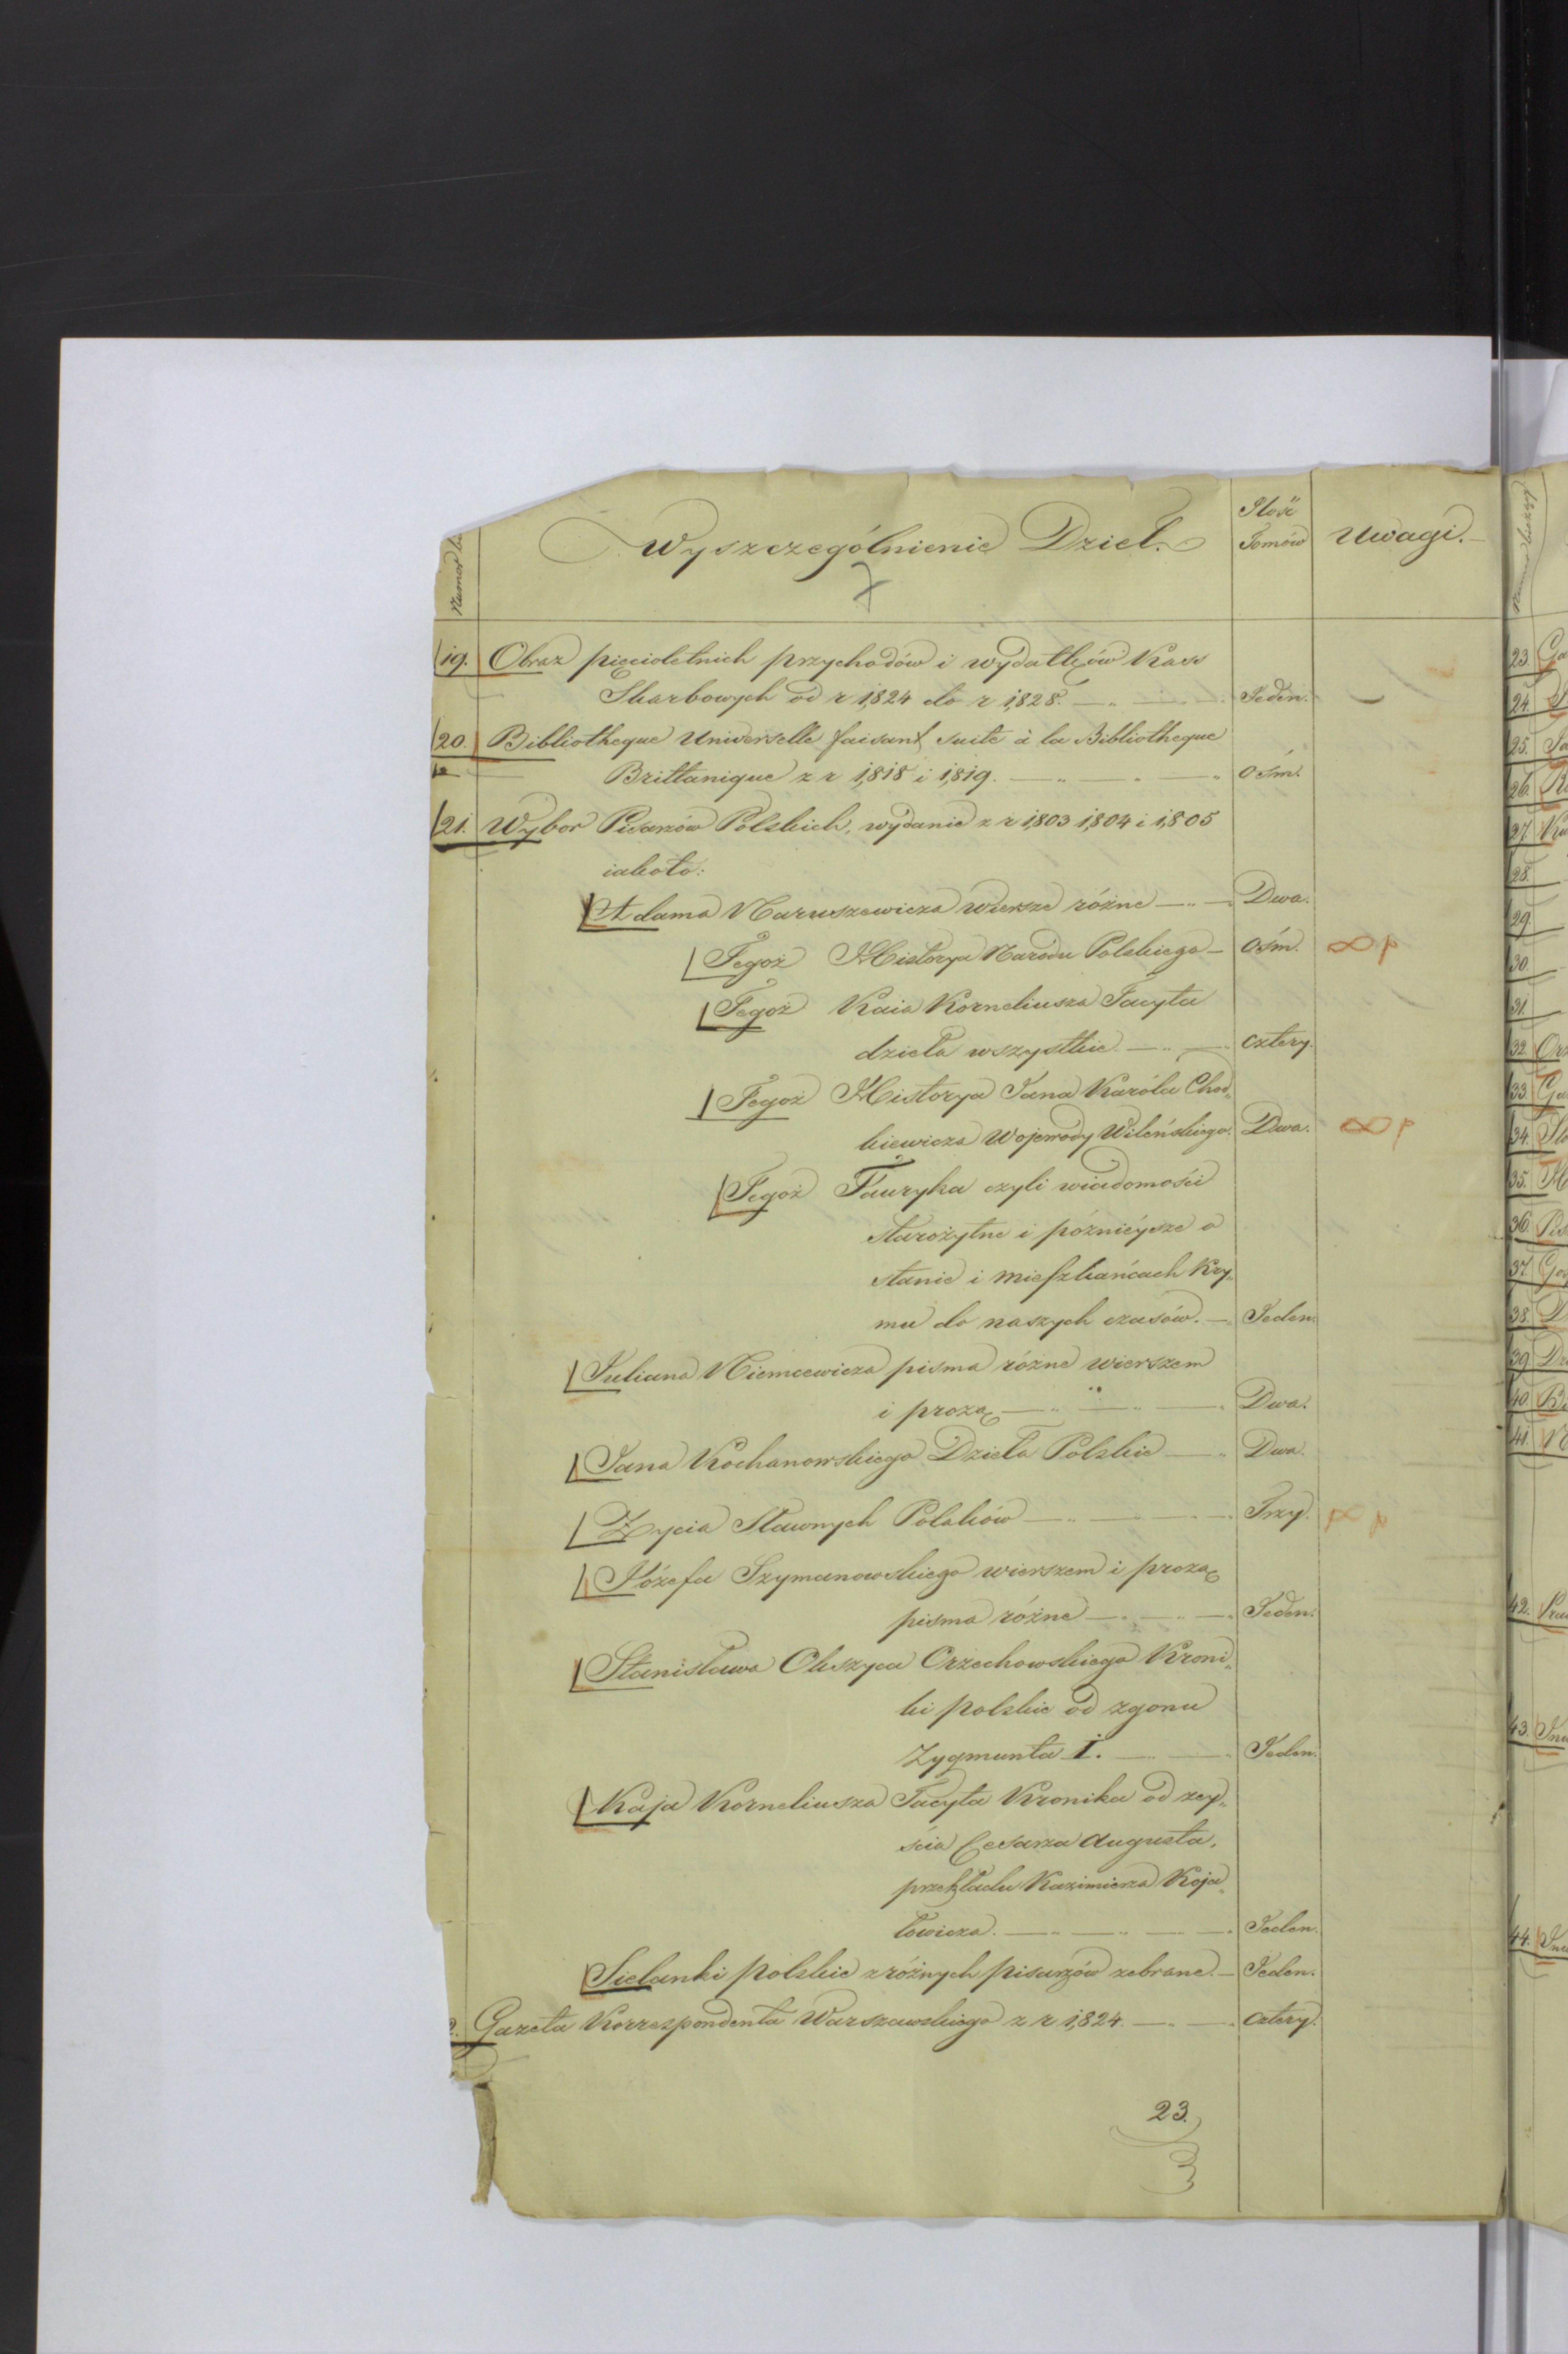 Numer
Wyszczególnienie Dzieł.
Ilość
Tomów
Uwagi.
19. Obraz pięcioletnich przychodów i wydatków Kass
Skarbowych od r 1,824 do r 1,828. Jeden.
20. Bibliotheque Universelle faisant suite à la Bibliotheque
Brittanique z r 1,818 i 1,819. Ośm.
21. Wybor Pisarzów Polskich, wydanie z r 1,803 1,804 i 1,805
iakoto:
Adama Naruszewicza wiersze różne Dwa.
Tegoż Historya Narodu Polskiego Ośm. p
Tegoż Kaia Korneliusza Tacyta
dzieła wszystkie cztery.
Tegoż Historya Jana Karóla Chod„
kiewicza Wojewody Wileńskiego. Dwa. p
Tegoż Tauryka czyli wiadomości
starożytne i późnieysze o
stanie i mieszkańcach Kry„
mu do naszych czasów. Jeden.
Juliana Niemcewicza pisma różne wierszem
i prozą Dwa.
Jana Kochanowskiego Dzieła Polskie Dwa.
Życia Sławnych Polaków Trzy. p
Józefa Szymanowskiego wierszem i prozą
pisma różne Jeden.
Stanisława Okszyca Orzechowskiego Kroni„
ki polskie od zgonu
Zygmunta I. Jeden.
Kaja Korneliusza Tacyta Kronika od zey„
ścia Cesarza Augusta,
przekładu Kazimierza Koja„
łowicza. Jeden.
Sielanki polskie z różnych pisarzów zebrane. Jeden.
Gazeta Korrespondenta Warszawskiego z r 1,824. cztery.
23.
23.
24.
25.
26.
27.
28.
29.
30.
31.
32.
33.
34.
35.
36.
37.
38.
39.
40.
41.
42.
43.
44.